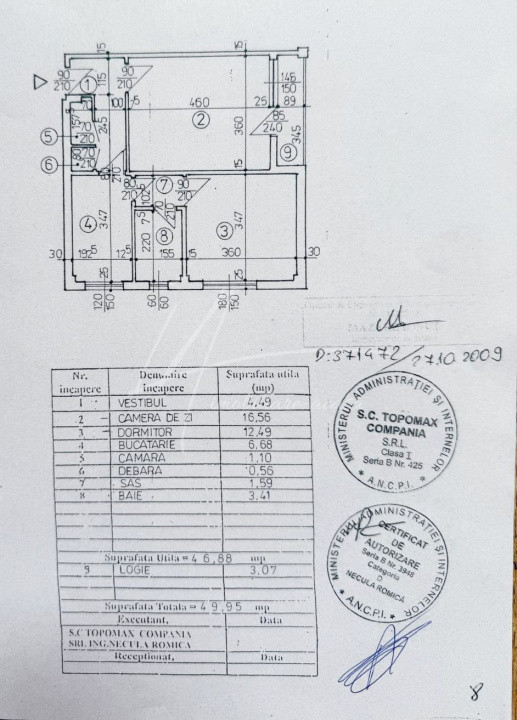 15
15
90
210
1
115
90
210
100
5
460
25
146
150
89
2
85
240
360
345
9
157
5
70
210
245
6
80
70
210
80
210
15
15
80
210
7
90
210
102
5
70
210
4
347
7
5
8
220
3
347
30
192
5
12
5
155
15
360
30
25
25
120
150
60
60
180
150
D:371472 / 27.10.2009
Nr. incapere Denumire incapere Suprafata utila (mp)
1 VESTIBUL 4,49
2 CAMERA DE ZI 16,56
3 DORMITOR 12,49
4 BUCATARIE 6,68
5 CAMARA 1,10
6 DEBARA 0,56
7 SAS 1,59
8 BAIE 3,41
Suprafata Utila = 46,88 mp
9 LOGIE 3,07
Suprafata Totala = 49,95 mp
Executant, Data
S.C TOPOMAX COMPANIA
SRL ING.NECULA ROMICA
Receptionat, Data
MINISTERUL ADMINISTRAȚIEI ȘI INTERNELOR
S.C. TOPOMAX
COMPANIA
S.R.L.
Clasa I
Seria B Nr. 425
* A.N.C.P.I. *
MINISTERUL ADMINISTRAȚIEI ȘI INTERNELOR
CERTIFICAT
DE
AUTORIZARE
Seria B Nr. 3948
Categoria
D
NECULA ROMICA
* A.N.C.P.I. *
8